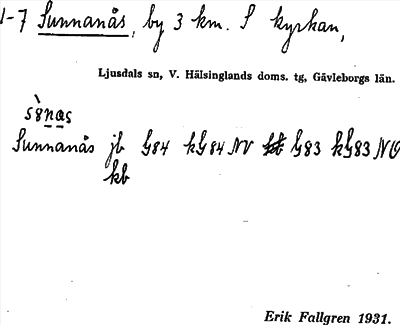 1-7 Sunnanås, by 3 km. S kyrkan,
Ljusdals sn, V. Hälsinglands doms. tg, Gävleborgs län.
Sunnanås jb G84 kG84 NV kb G83 kG83 NO
kb
Erik Fallgren 1931.